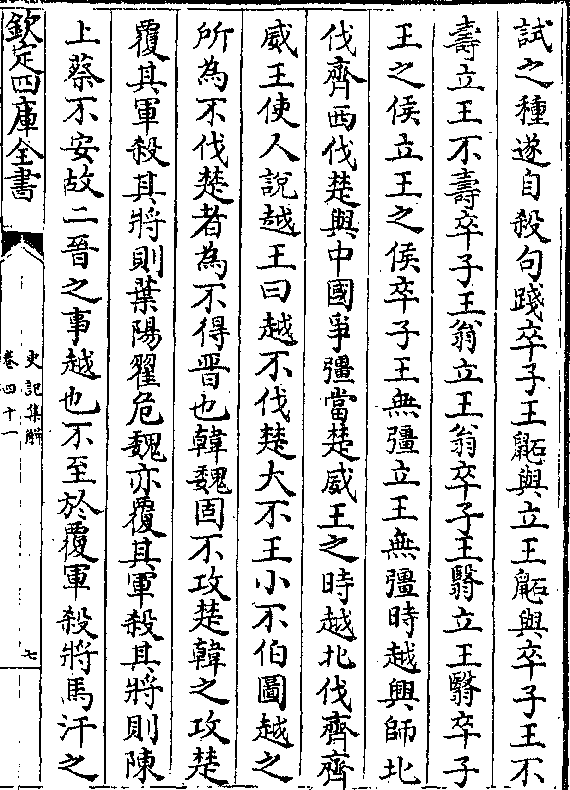 試之種遂自殺句踐卒子王鼫與立王鼫與卒子王不
壽立王不壽卒子王翁立王翁卒子王翳立王翳卒子
王之侯立王之侯卒子王無彊立王無彊時越興師北
伐齊西伐楚與中國爭彊當楚威王之時越北伐齊齊
威王使人說越王曰越不伐楚大不王小不伯圖越之
所為不伐楚者為不得晉也韓魏固不攻楚韓之攻楚
覆其軍殺其將則葉陽翟危魏亦覆其軍殺其將則陳
上蔡不安故二晉之事越也不至於覆軍殺將馬汗之
欽定四庫全書
史記集解
卷四十一
七